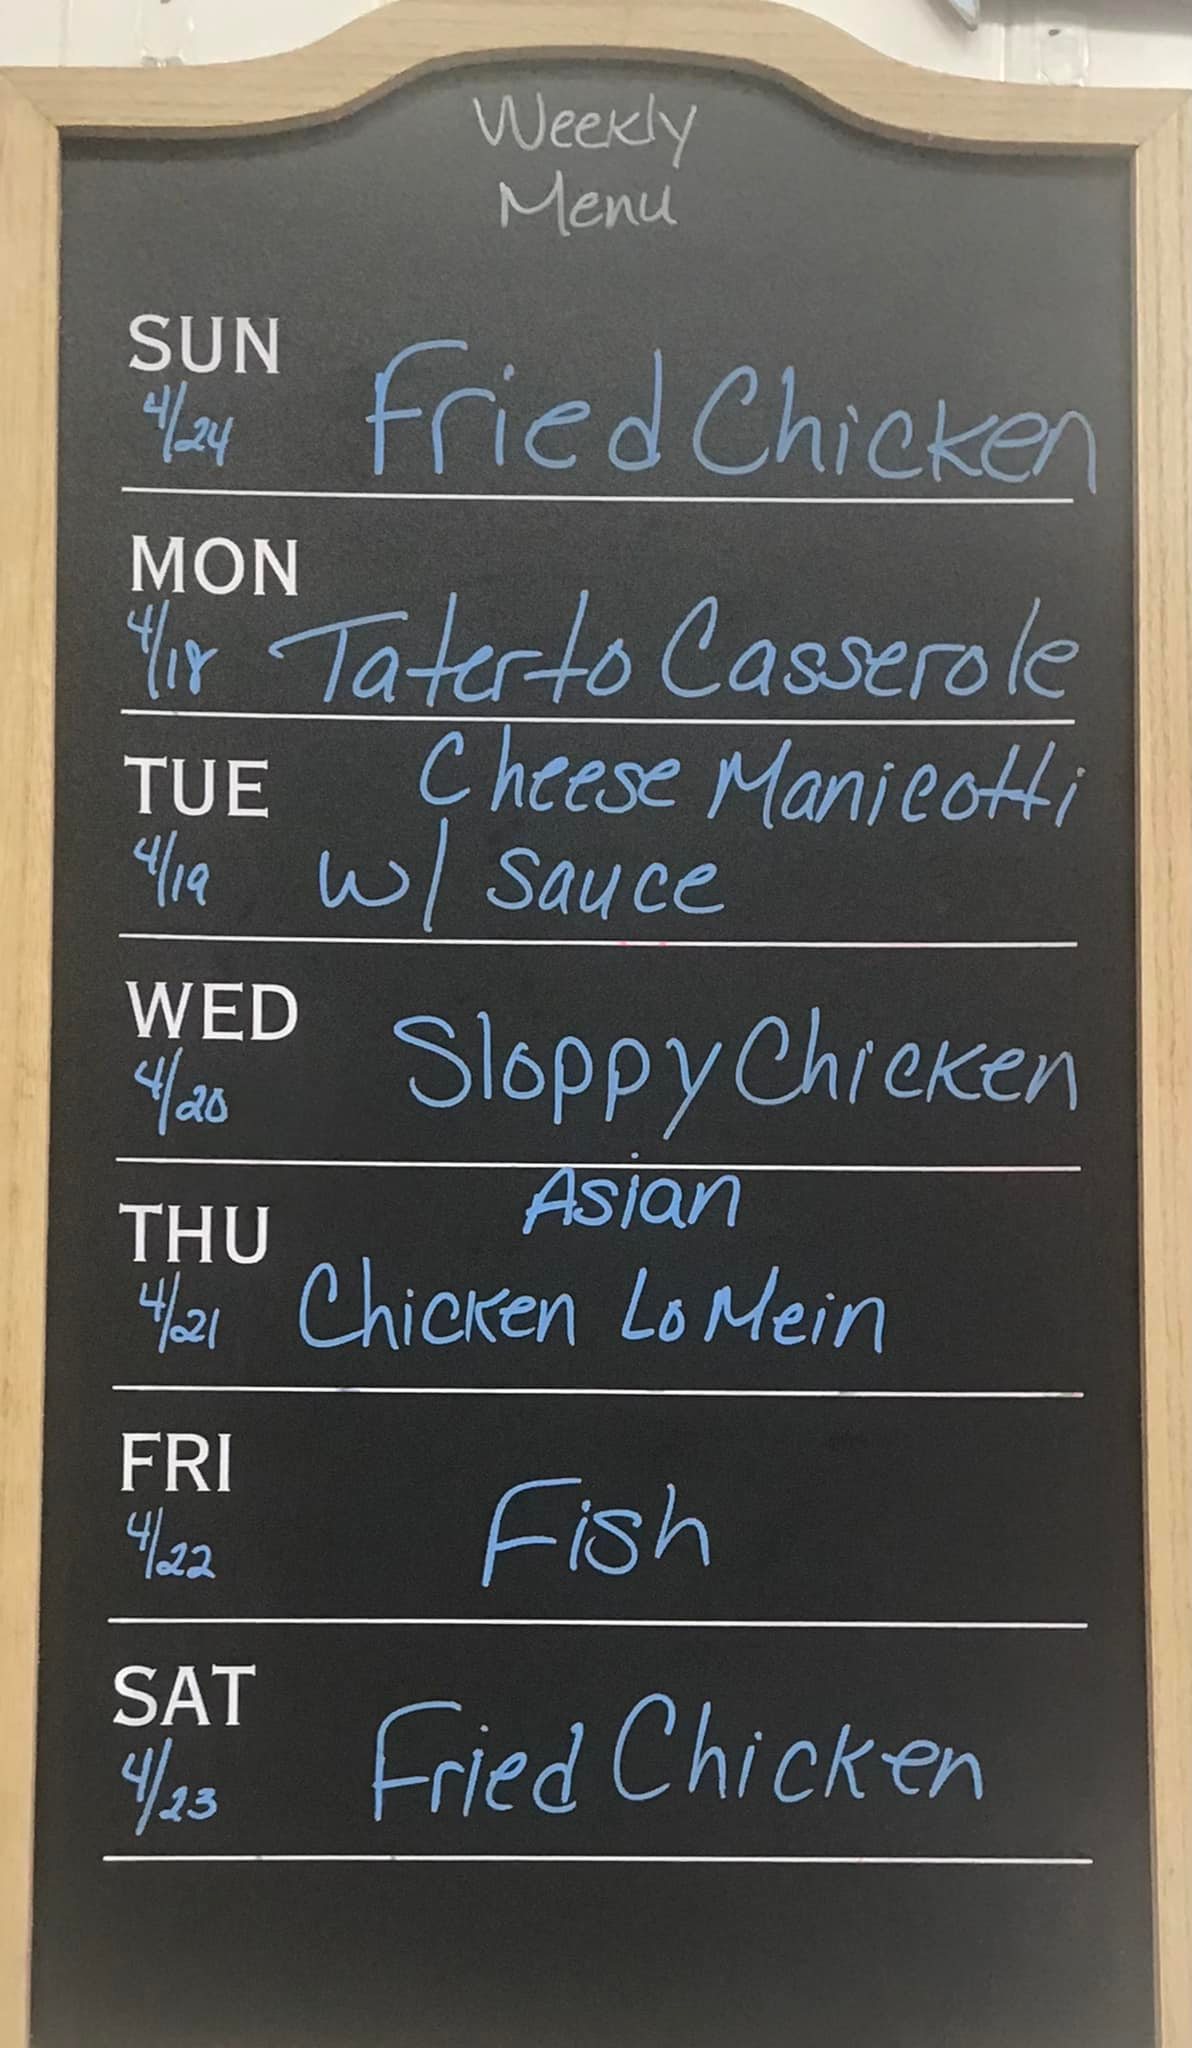 Weekly
Menu
SUN
4/24 Fried Chicken
MON
4/18 Taterto Casserole
TUE Cheese Manicotti
4/19 w/ sauce
WED
4/20 Sloppy Chicken
Asian
THU
4/21 Chicken Lo Mein
FRI
4/22 Fish
SAT
4/23 Fried Chicken